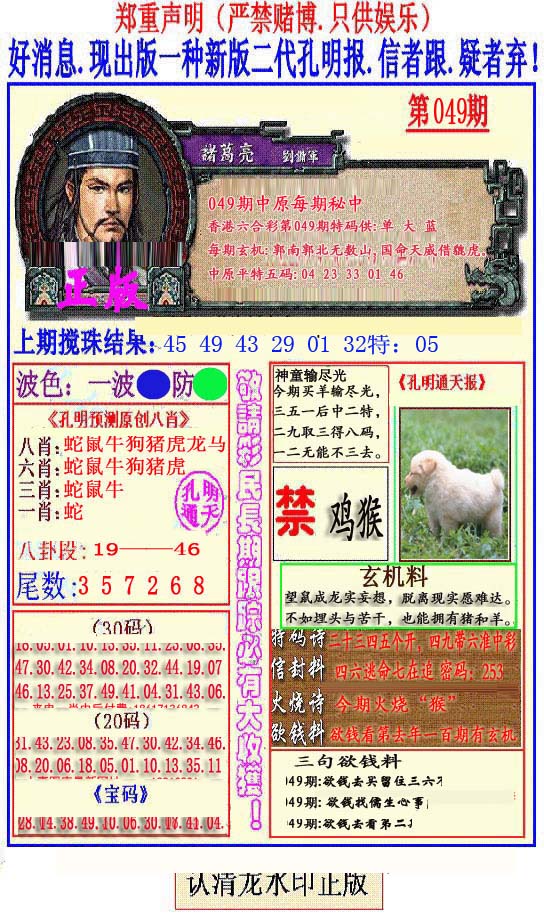 郑重声明（严禁赌博.只供娱乐）
好消息.现出版一种新版二代孔明报.信者跟.疑者弃!
第049期
諸葛亮 劉備軍
049期中原每期秘中
香港六合彩第049期特码供:单 大 蓝
每期玄机:郭南郭北无数山,国命天威借貔虎.
中原平特五码:04 23 33 01 46
正版
上期搅珠结果: 45 49 43 29 01 32特: 05
波色: 一波 防
《孔明预测原创八肖》
八肖:蛇鼠牛狗猪虎龙马
六肖:蛇鼠牛狗猪虎
三肖:蛇鼠牛
一肖:蛇
孔明
通天
八卦段: 19——46
尾数:3 5 7 2 6 8
(30码)
18.05.01.10.13.35.11.23.08.35.
47.30.42.34.08.20.32.44.19.07
46.13.25.37.49.41.04.31.43.06.
(20码)
31.43.23.08.35.47.30.42.34.46.
08.20.06.18.05.01.10.13.35.11
《宝码》
28.14.38.49.10.06.30.18.41.04.
敬請彩民長期跟踪必有大收獲!
神童输尽光
今期买羊输尽光,
三五一后中二特,
二九取三得八码,
一二无能不三去。
《孔明通天报》
禁 鸡猴
玄机料
望鼠成龙实妄想，脱离现实愿难达。
不如埋头与苦干，也能拥有猪和羊。
特码诗 二十三四五个开，四九带六准中彩
信封料 四六逃命七在追 密码：253
火烧诗 今期火烧“猴”
欲钱料 欲钱看第去年一百期有玄机
三句欲钱料
049期:欲钱去买留住三六
049期:欲钱找儒生心事
049期:欲钱去看第二
认清龙水印正版